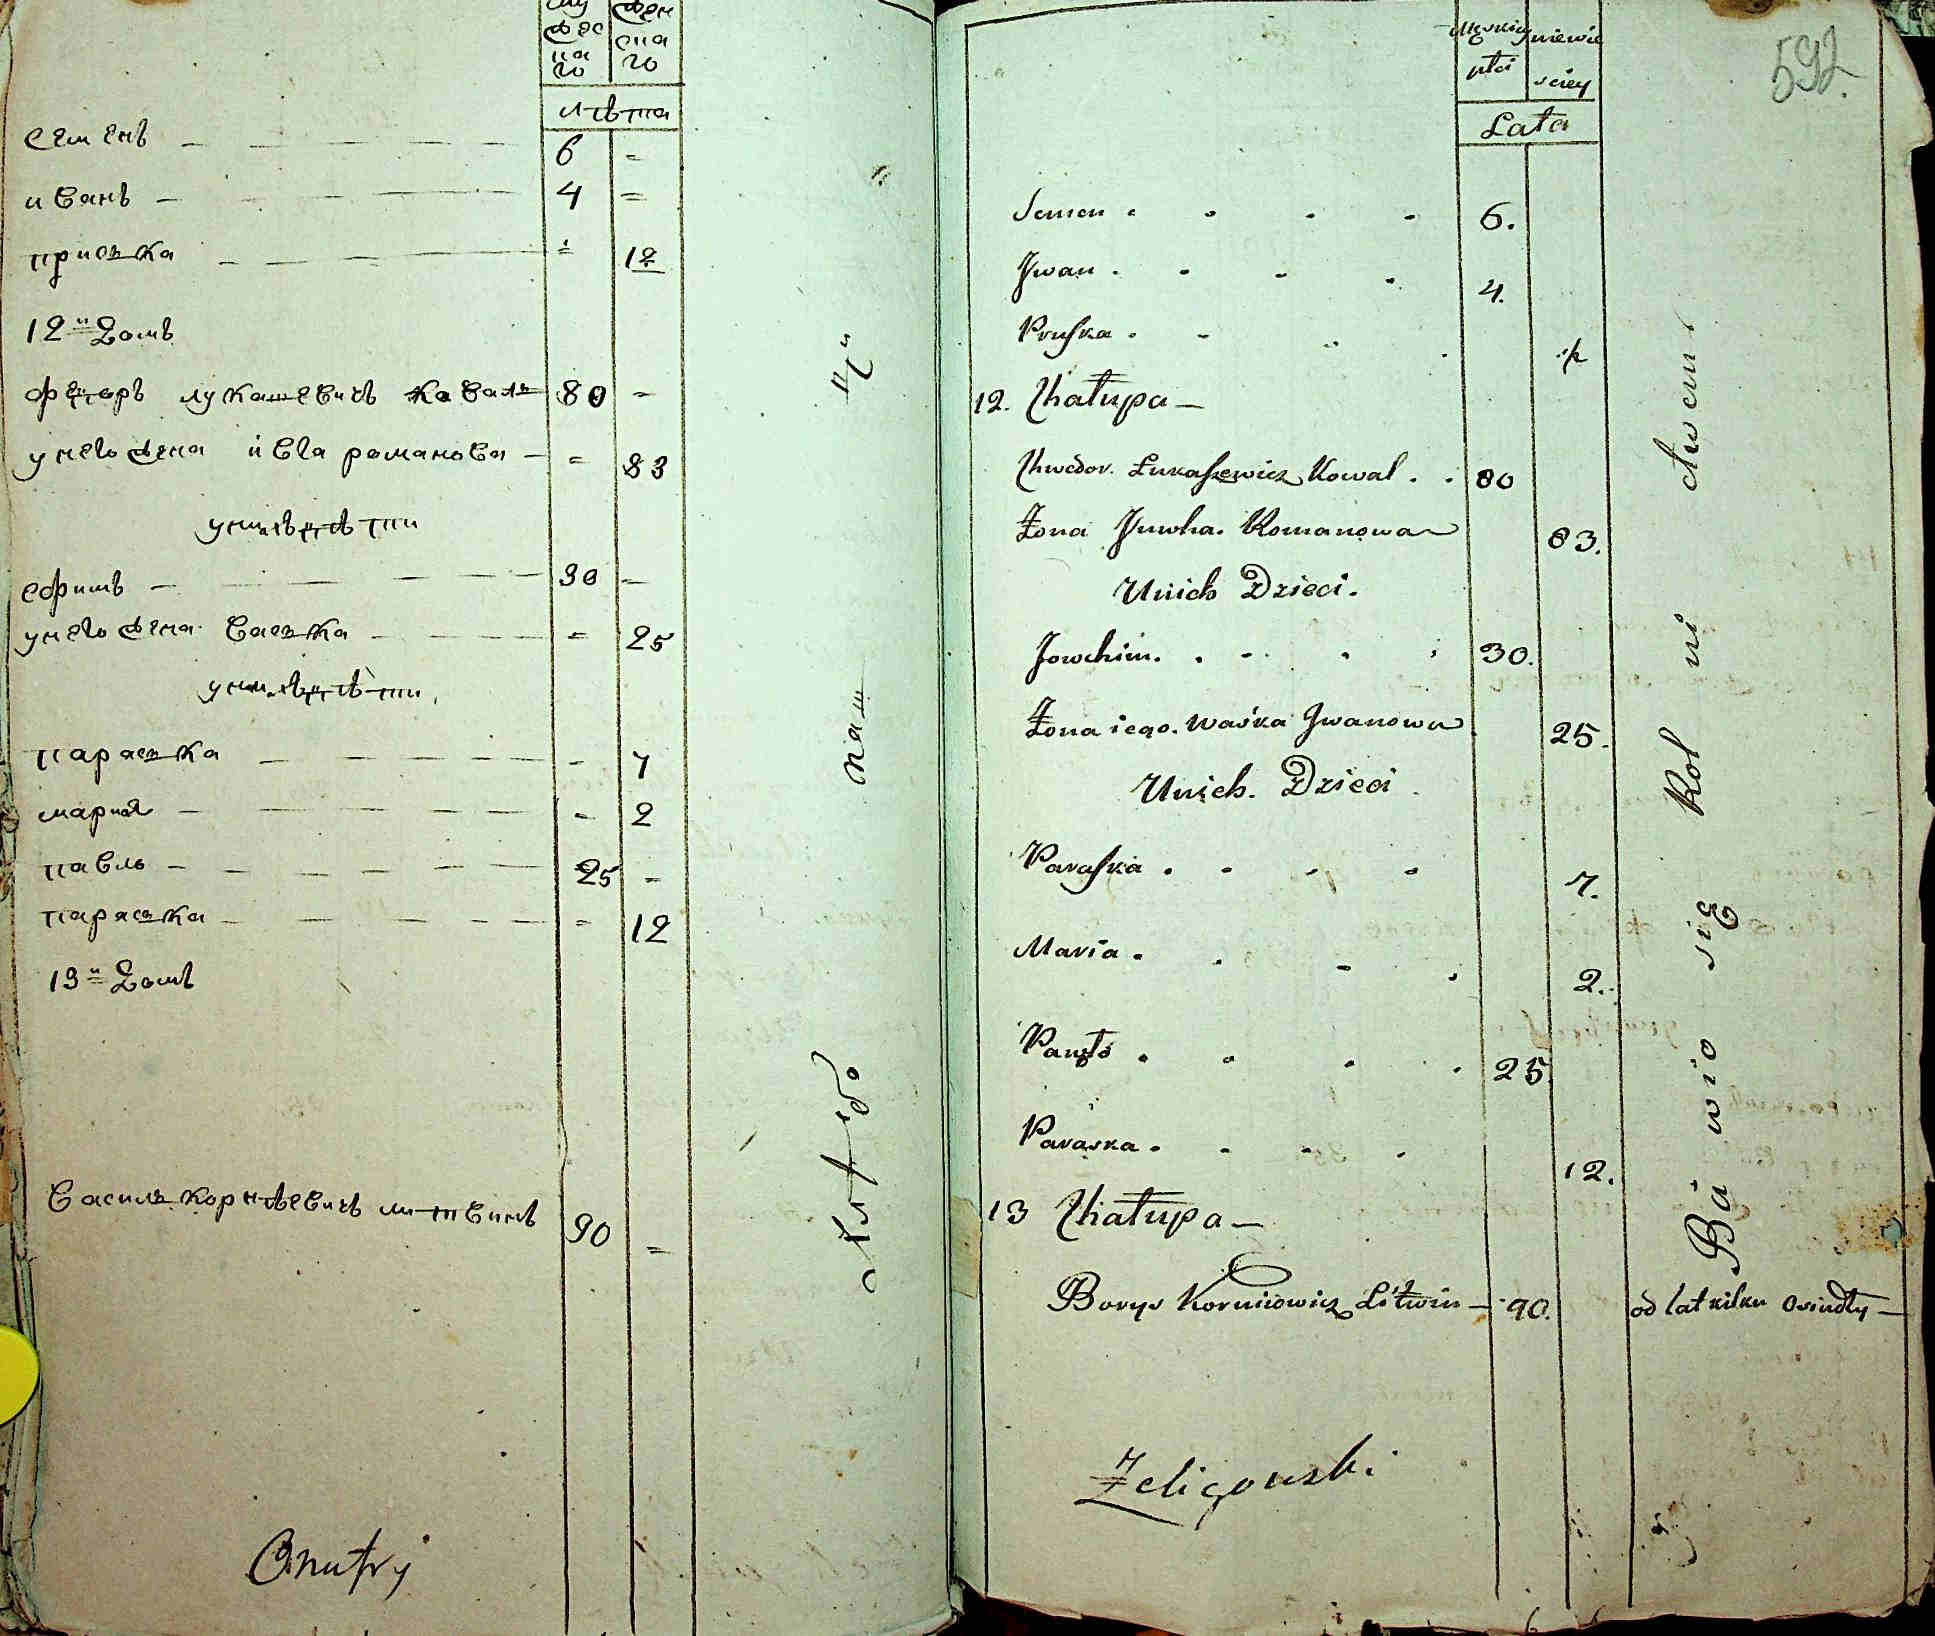 му жен
жес ска
ка го
го
лѣта
семенъ 6 =
иванъ 4 =
приська = 12
12й домъ
фецоръ лукашевичъ коваль 80 -
унего жена ивга романова = 83
унихъ дѣти
ефимъ 30 -
унего жена васька = 25
унихъ дѣти
параська - 7
мария - 2
павло 25 -
параська = 12
13й домъ
василь корнѣевичъ литвинъ 90 =
хлѣбо паш ц
Onufry
592.
Męskiey niewie
płci sciey
Lata
Semen 6.
Jwan 4.
Pruska
12. Chałupa
Chwedor Łukaszewicz Kowal 80
Żona Juwha Romanowa 83.
Unich Dzieci.
Jowchim 30.
Żona iego Waśka Jwanowa 25.
Unich Dzieci
Paraska 7.
Maria 2.
Pawło 25.
Paraska 12.
13 Chałupa
Borys Korniiowicz Litwin 90. od lat kilku Osiadły
Bawią się Rol ni ctwem
Żeligowski